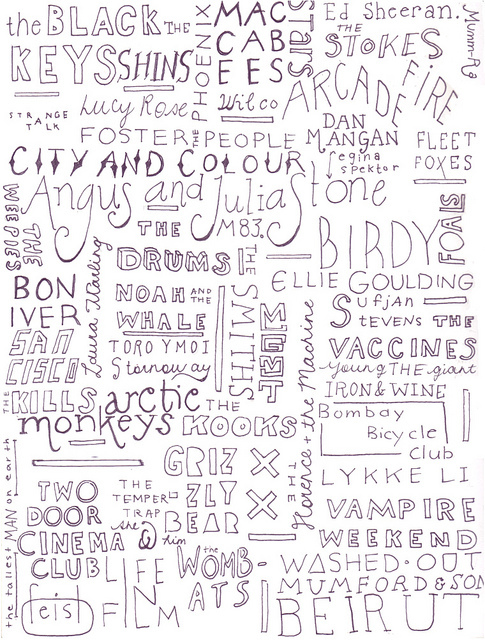 the BLACK
KEYS
THE
SHINS
PHOENIX
THE
MAC
CAB
EES
Stars
Ed Sheeran.
Mumm-Ra
THE
STOKES
STRANGE
TALK
Lucy Rose
Wilco
ARCADE FIRE
FOSTER THE PEOPLE
DAN
MANGAN
regina
spektor
FLEET
FOXES
CITY AND COLOUR
Angus and Julia Stone
THE
WEEPIES
THE
DRUMS
M83.
BIRDY
FOALS
BON
IVER
Laura Marling
NOAH AND THE
WHALE
THE
SMITHS
ELLIE GOULDING
Sufjan
STEVENS
THE
VACCINES
SAN
CISCO
TORO Y MOI
Stornoway
MGMT
Florence + the Machine
Young THE giant
IRON & WINE
THE
KILLS
arctic
monkeys
THE
KOOKS
Bombay
Bicycle
Club
the tallest MAN on earth
GRIZ
ZLY
BEAR
THE
XX
LYKKE LI
TWO
DOOR
CINEMA
CLUB
THE
TEMPER
TRAP
she
&
him
VAMPIRE
WEEKEND
feist
LIFE
IN
FILM
the
WOMB-
ATS
WASHED·OUT
MUMFORD & SON
BEIRUT